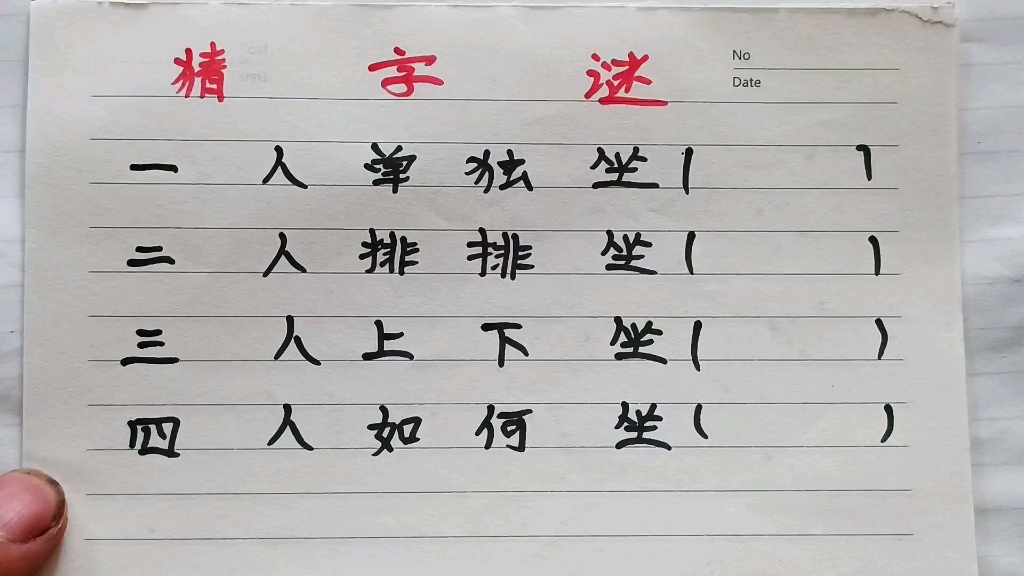 No
Date
猜字谜
一人单独坐( )
二人排排坐( )
三人上下坐( )
四人如何坐( )